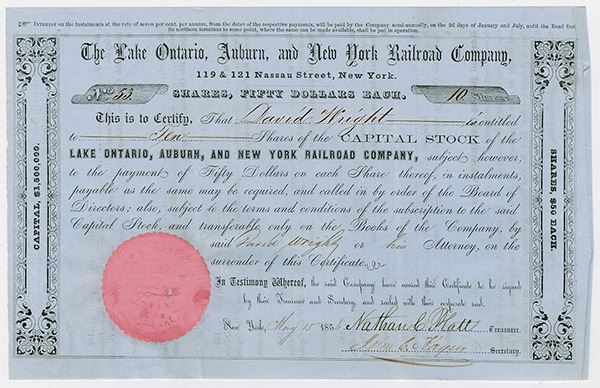 INTEREST on the Instalments at the rate of seven per cent. per annum, from the dates of the respective payments, will be paid by the Company semi-annually, on the 2d days of January and July, until the Road from
its northern terminus to some point, where the same can be made available, shall be put in operation.
The Lake Ontario, Auburn, and New York Railroad Company,
119 & 121 Nassau Street, New York.
SHARES, FIFTY DOLLARS EACH.
No. 53.
10 Shares
This is to Certify, That David Wright is entitled
to Ten Shares of the CAPITAL STOCK of the
LAKE ONTARIO, AUBURN, AND NEW YORK RAILROAD COMPANY, subject however,
to the payment of Fifty Dollars on each Share thereof, in instalments,
payable as the same may be required, and called in by order of the Board of
Directors: also, subject to the terms and conditions of the subscription to the said
Capital Stock, and transferable only on the Books of the Company, by
said David Wright or his Attorney, on the
surrender of this Certificate.
In Testimony Whereof, the said Company have caused this Certificate to be signed
by their Treasurer and Secretary, and sealed with their corporate seal.
New York, May 15 185
Nathan C. Platt Treasurer.
Secretary.
CAPITAL, $1,500,000.
SHARES, $50 EACH.